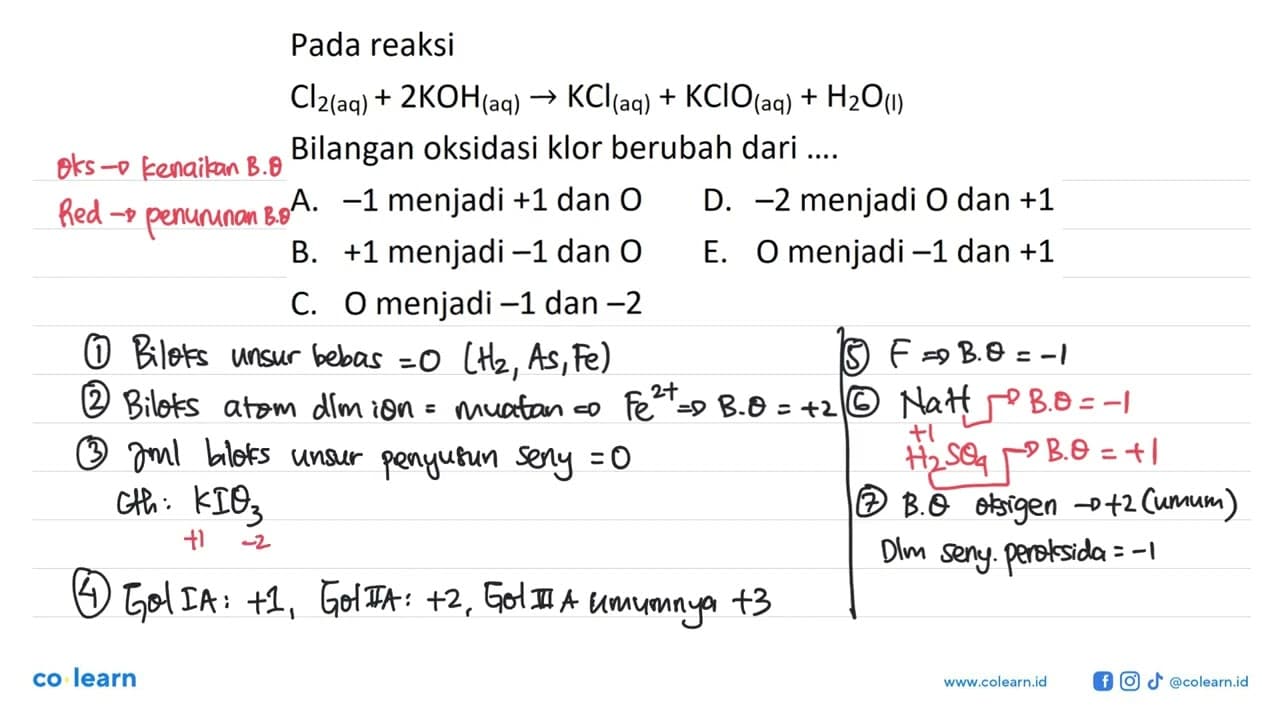 Pada reaksi
Cl2(aq) + 2KOH(aq) → KCl(aq) + KClO(aq) + H2O(l)
Bilangan oksidasi klor berubah dari ....
Oks → kenaikan B.O
Red → penurunan B.O
A. –1 menjadi +1 dan O
B. +1 menjadi –1 dan O
C. O menjadi –1 dan –2
D. –2 menjadi O dan +1
E. O menjadi –1 dan +1
① Biloks unsur bebas = 0 (H2, As, Fe)
② Biloks atom dlm ion = muatan => Fe²⁺ => B.O = +2
③ Jml biloks unsur penyusun seny = 0
Cth: KIO3
+1 -2
④ Gol IA: +1, Gol IIA: +2, Gol III A umumnya +3
⑤ F => B.O = -1
⑥ NaH → B.O = -1
+1
H2SO4 → B.O = +1
⑦ B.O oksigen → +2 (umum)
Dlm seny. peroksida = -1
co learn
www.colearn.id
@colearn.id